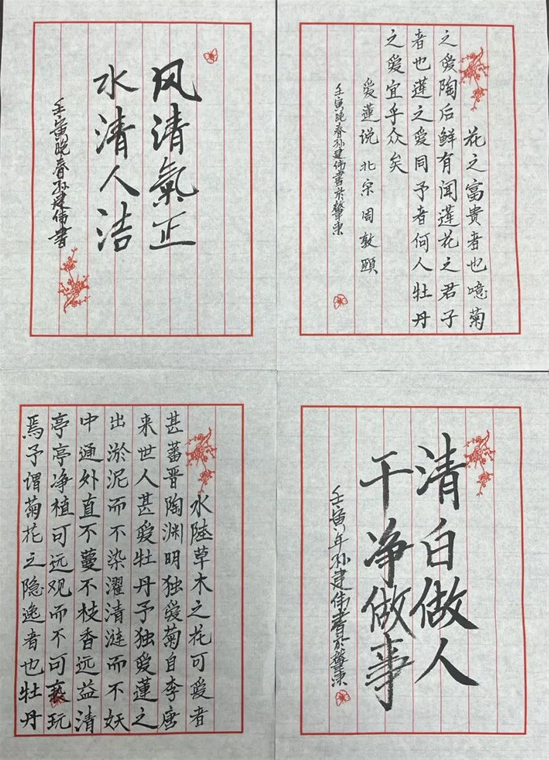 风清氣正
水清人洁
壬寅晚春孙建伟書
花之富貴者也噫菊
之爱陶后鲜有闻蓮花之君子
者也蓮之爱同予者何人牡丹
之爱宜乎众矣
爱蓮说 北宋 周敦頤
壬寅晚春孙建伟書於肇东
水陸草木之花可爱者
甚蕃晋陶渊明独爱菊自李唐
来世人甚爱牡丹予独爱蓮之
出淤泥而不染濯清涟而不妖
中通外直不蔓不枝香远益清
亭亭净植可远观而不可亵玩
焉予谓菊花之隐逸者也牡丹
清白做人
干净做事
壬寅年孙建伟書於肇东